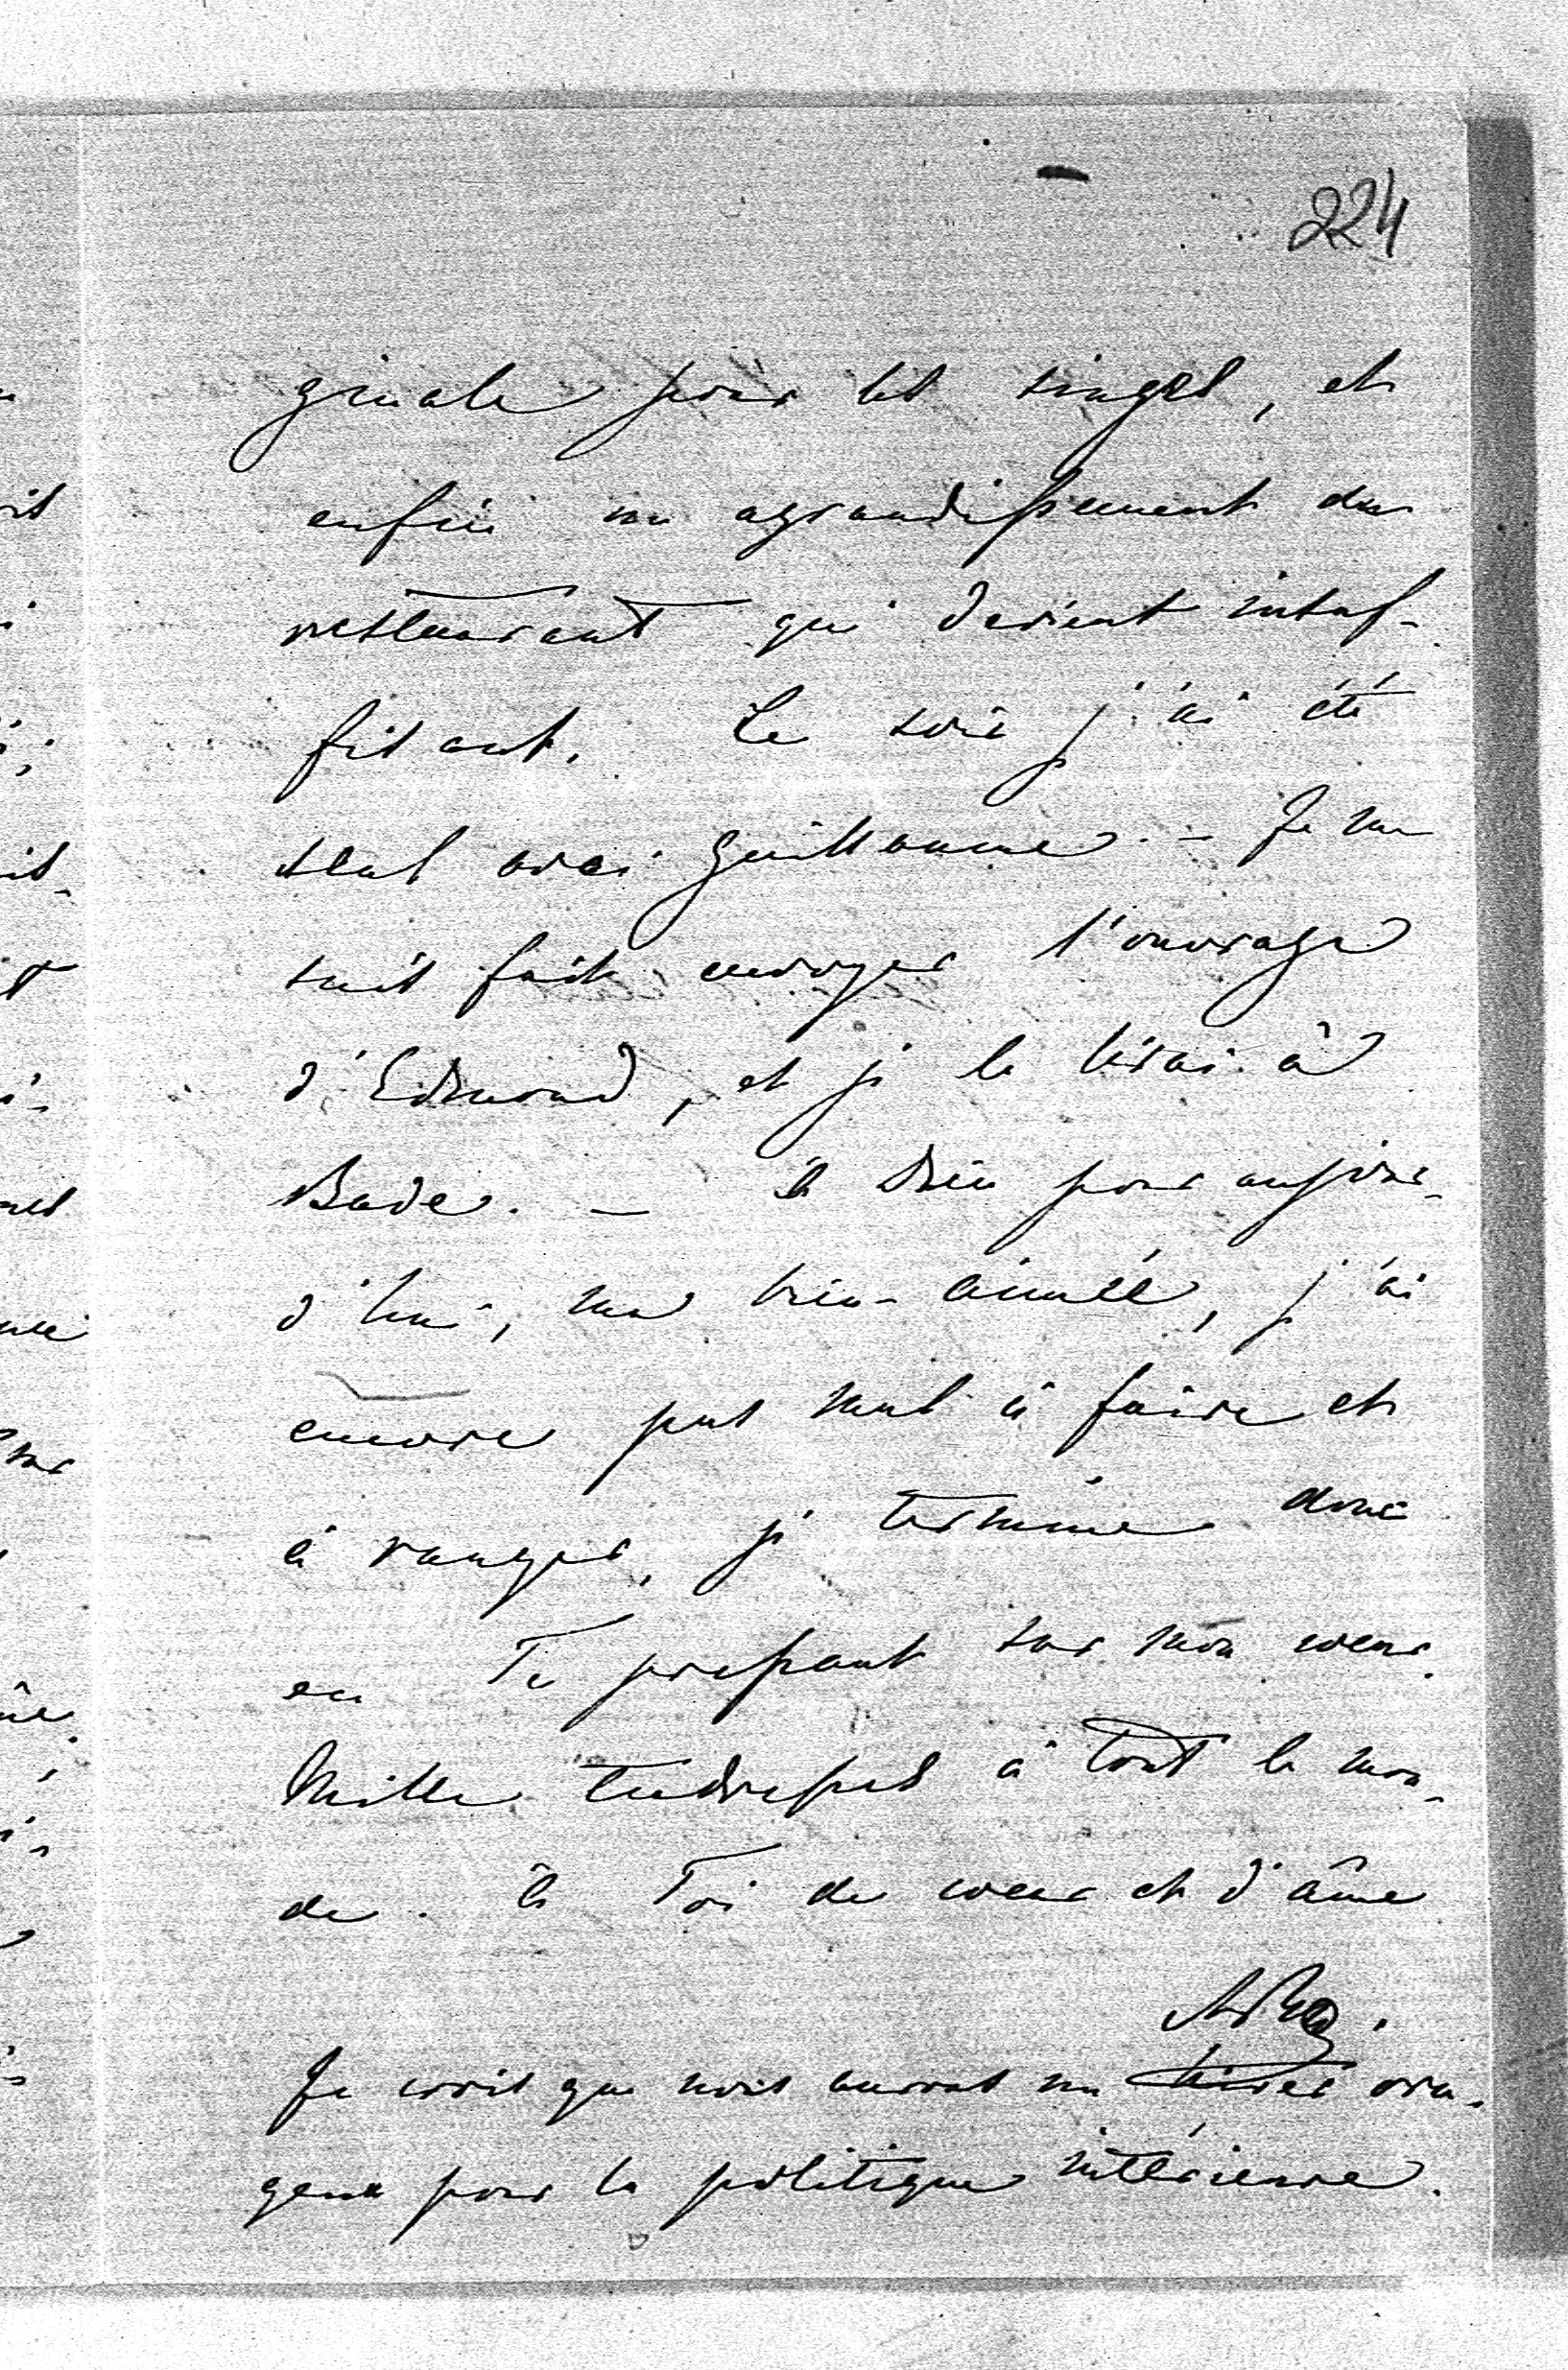 224
ginale pour les singes, et
enfin un agrandissement du
restaurant qui devient insuf-
fisant. Le soir j'ai été
seul avec Guillaume. – Je me
suis fait envoyer l'ouvrage
d'Edmond, et je le lirai à
Bade. – à Dieu pour aujour-
d'hui, ma bien-aimée, j'ai
encore pas mal à faire et
à ranger, je termine donc
en Te pressant sur mon cœur.
Mille tendresses à tout le mon-
de. à Toi de cœur et d'âme
Je crois que nous aurons un hiver ora-
geux pour la politique intérieure.